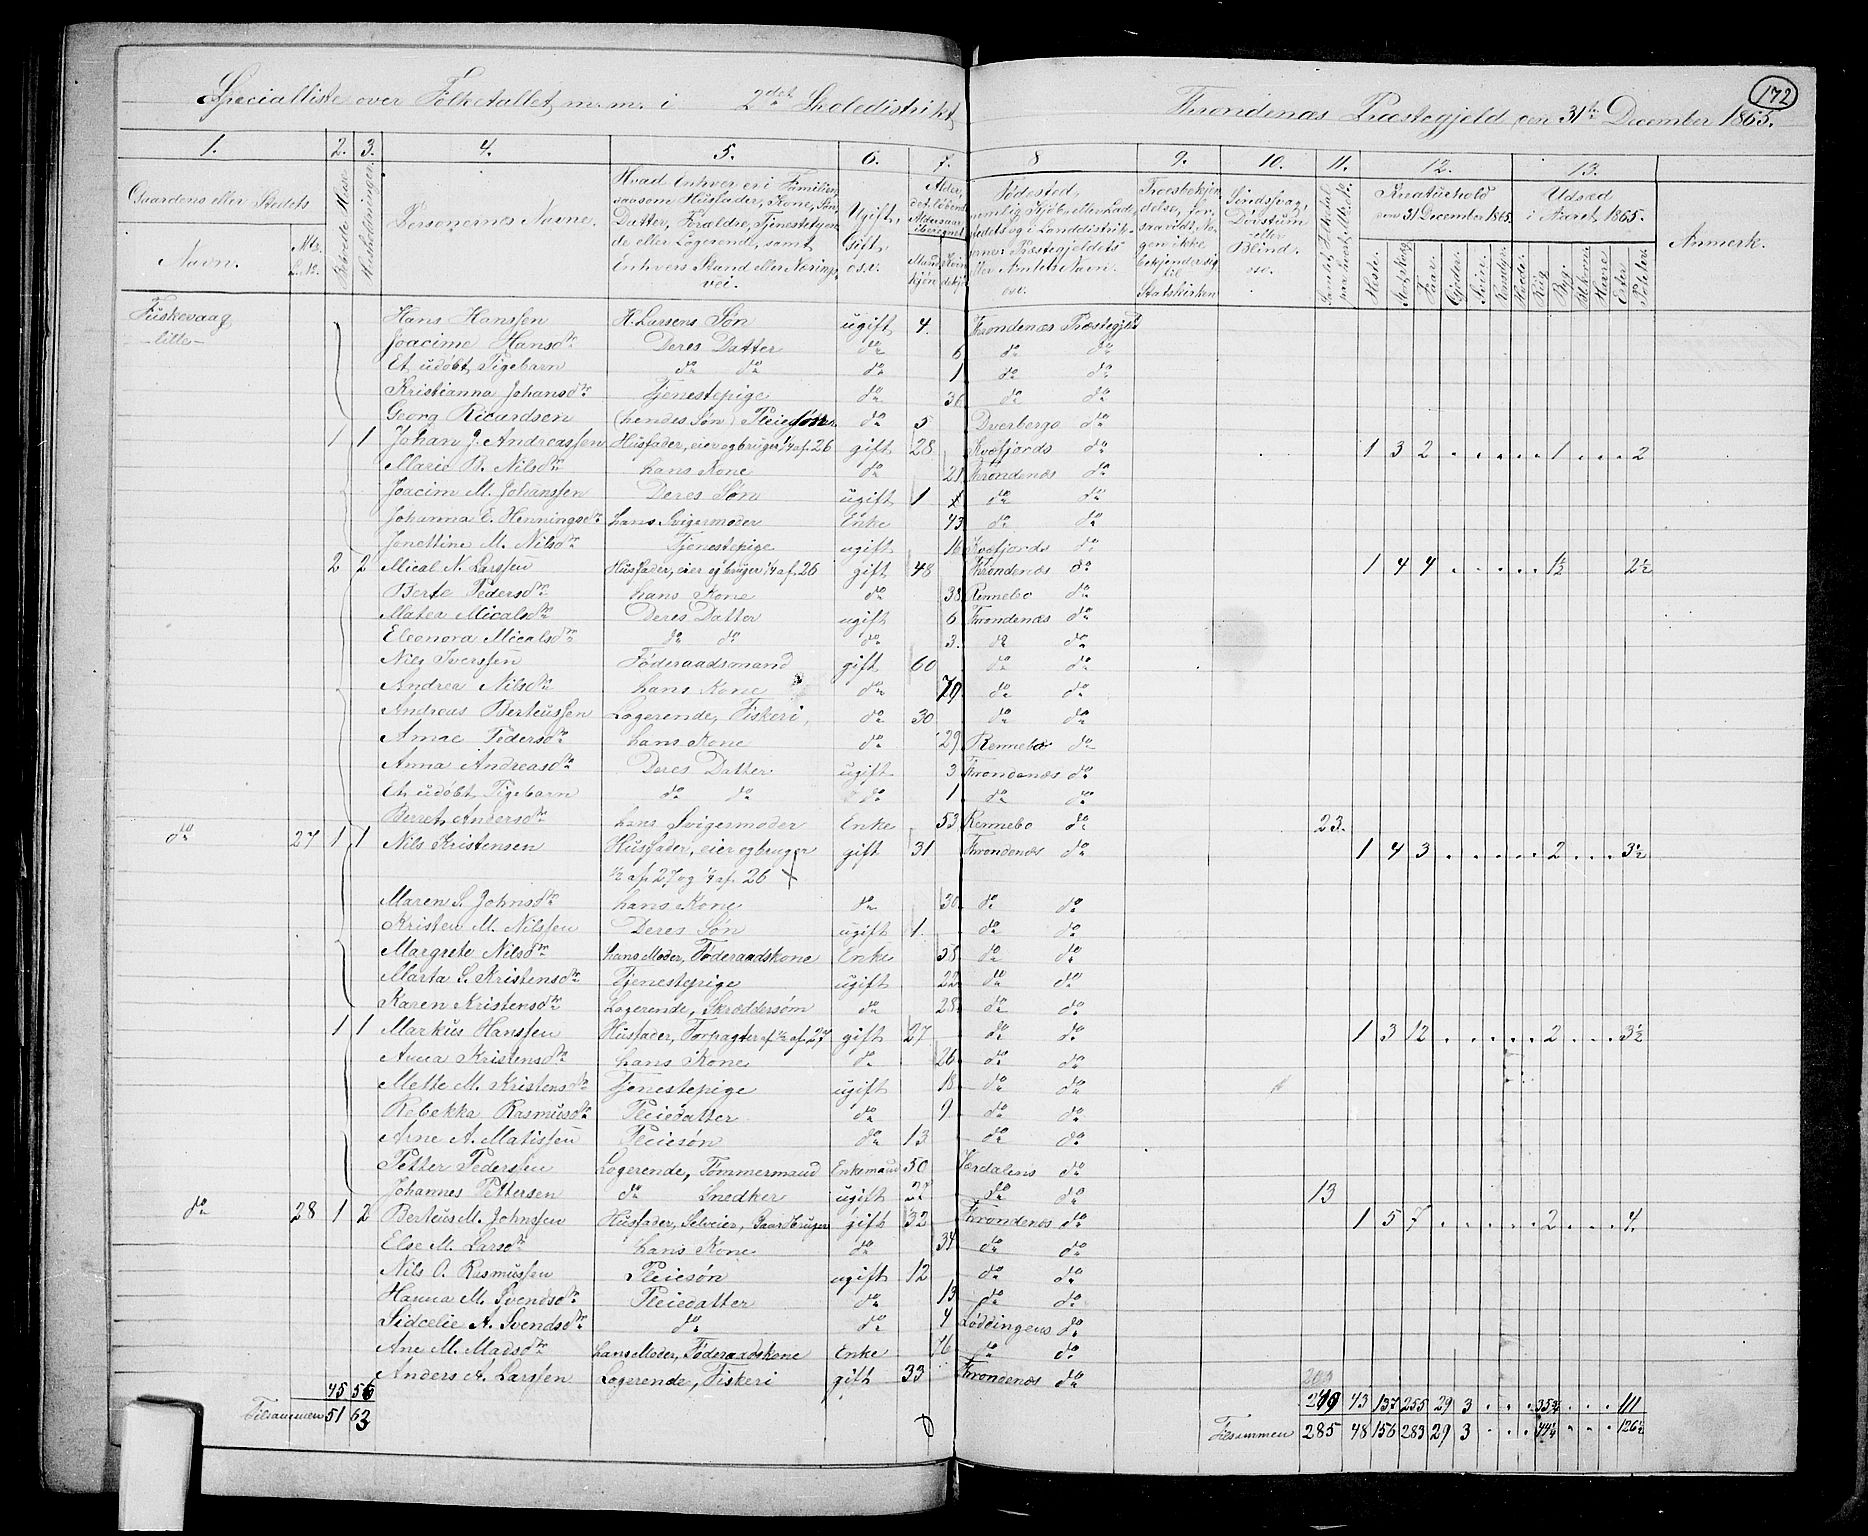 172
Specialliste over Folketallet m.m. i 2det Skoledistrikt Throndenæs Præstegjeld den 31te December 1865.
1. 2. 3. 4. 5. 6. 7. 8 9. 10. 11. 12. 13.
Gaardens eller Stedets
Navn.
Beboede Huse
Husholdninger
Personernes Navne.
Hvad Enhver er i Familien,
saasom Husfader, Kone, Søn,
Datter, Forældre, Tjenestetyen-
de eller Logerende, samt
Enhvers Stand eller Nærings-
vei.
Ugift,
Gift
osv.
Alder,
det løbende
Aldersaar
iberegnet
Mand-
kjøn
Kvin-
dekjøn
Fødested,
nemlig Kjøb- eller Lade-
stedets og i Landdistrik-
terne Præstegjeldets
eller Annexets Navn
osv.
Troesbekjen-
delse, for-
saavidt No-
gen ikke
bekjender sig
til
Statskirken
Sindssvag,
Døvstum
eller
Blind
osv.
Kreaturhold
den 31 December 1865.
Udsæd
i Aaret 1865.
Anmerk.
Heste. Storfæ Faar. Gjeder. Sviin. Rensdyr. Hvede. Rug Byg. Havre Erter Poteter
Fuskevaag Hans Hanssen H. Larsens Søn ugift 4. Throndenæs Præstegjeld
lille Joacime Hansdtr Deres Datter do 6 do do
Et udøbt Pigebarn do do do 1 do do
Kristianna Johansdtr Tjenestepige do 30 do do
Georg Ricardsen (hendes Søn) Pleiesøn do 5 Dverbergs do
1 1 Johan J. Andreassen Husfader, eier og bruger 1/4 af 26 gift 28 Kvæfjords do 1 3 2 . . . . . 1 . . . 2
Marie B. Nilsdtr hans Kone do 21 Throndenæs do
Joacim M. Johanssen Deres Søn ugift 1 do do
Johanna E. Henningsdtr hans Svigermoder Enke 43 do do
Jonettine M. Nilsdtr Tjenestepige ugift 16 Kvæfjords do
2 2 Mical N. Larssen Husfader, eier og bruger 1/4 af 26 gift 48 Throndenæs do 1 4 4 . . . . . 1½ 2½
Berte Pedersdtr hans Kone do 38 Rennebo do
Matea Micalsdtr Deres Datter ugift 6 Throndenæs do
Eleonora Micalsdtr do do do 3. do do
Nils Iverssen Føderaadsmand gift 60 do do
Andrea Nilsdtr hans Kone do 70 do do
Andreas Berteussen Logerende, Fiskeri, do 30 do do
Amae Pedersdtr hans Kone do 29 Rennebo do
Anna Andreasdtr Deres Datter ugift 3 Throndenæs do
Et udøbt Pigebarn do do do 1 do do
Berret Andersdtr hans Svigermoder Enke 53 Rennebo do 23.
do 27 1 1 Nils Kristensen Husfader, eier og bruger gift 31 Throndenæs do 1 4 3 . . . . . 2 . . . 3½
½ af 27 og ¼ af 26 ×
Maren S. Johnsdtr hans Kone do 30 do do
Kristen M. Nilssen Deres Søn ugift 1. do do
Margrete Nilsdtr hans Moder, Føderaadskone Enke 58 do do
Marta S. Kristensdtr Tjenestepige ugift 22 do do
Karen Kristensdtr Logerende, Skræddersøm do 28 do do
1 1 Markus Hanssen Husfader, Forpagter af ½ af 27 gift 27 do do 1 3 12 . . . . . 2 . . . 3½
Anna Kristensdtr hans Kone do 26 do do
Mette M. Kristensdtr Tjenestepige ugift 18 do do
Rebekka Rasmusdtr Pleiedatter do 9 do do
Arne A. Matissen Pleiesøn do 13 do do
Petter Pedersen Logerende, Tømmermand Enkemand 50 Værdalens do
Johannes Pettersen do Snedker ugift 22 do do 13
do 28 1 2 Berteus M. Johnssen Husfader, Selveier, Gaardbruger gift 32 Throndenæs do 1 5 7 . . . . . 2 . . . 4.
Else M. Larsdtr hans Kone do 34 do do
Nils O. Rasmussen Pleiesøn ugift 12 do do
Hanna M. Svendsdtr Pleiedatter do 13 do do
Sidcelie A. Svendsdtr do do 4 Løddingens do
Ane M. Madsdtr hans Moder, Føderaadskone Enke 76 do do
Anders A. Larssen Logerende, Fiskeri gift 33 Throndenæs do
45 56 249 43 137 255 29 3 . . 35¾ . . . 111
Tilsammen 51 63 Tilsammen 285 48 156 283 29 3 . . 44¼ . . . 126½